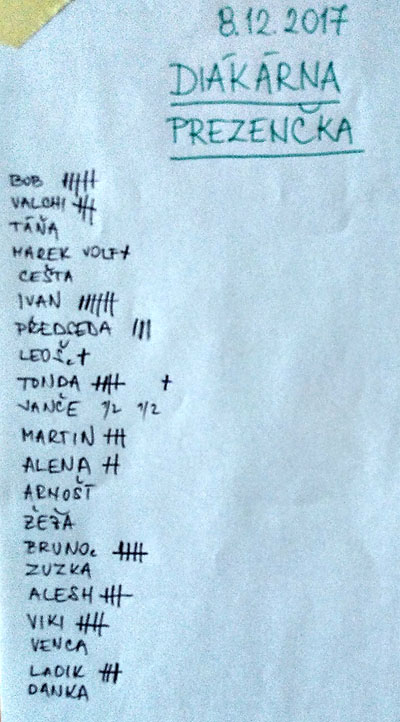 8.12.2017
DIÁKÁRNA
PREZENČKA
BOB
VALCHI
TÁŇA
MAREK VOLF
CEŠTA
IVAN
PŘEDSEDA
LEOŠ
TONDA
VANČE 1/2 1/2
MARTIN
ALENA
ARNOŠT
BRUNO
ZUZKA
ALESH
VIKI
VENCA
LADIK
DANKA